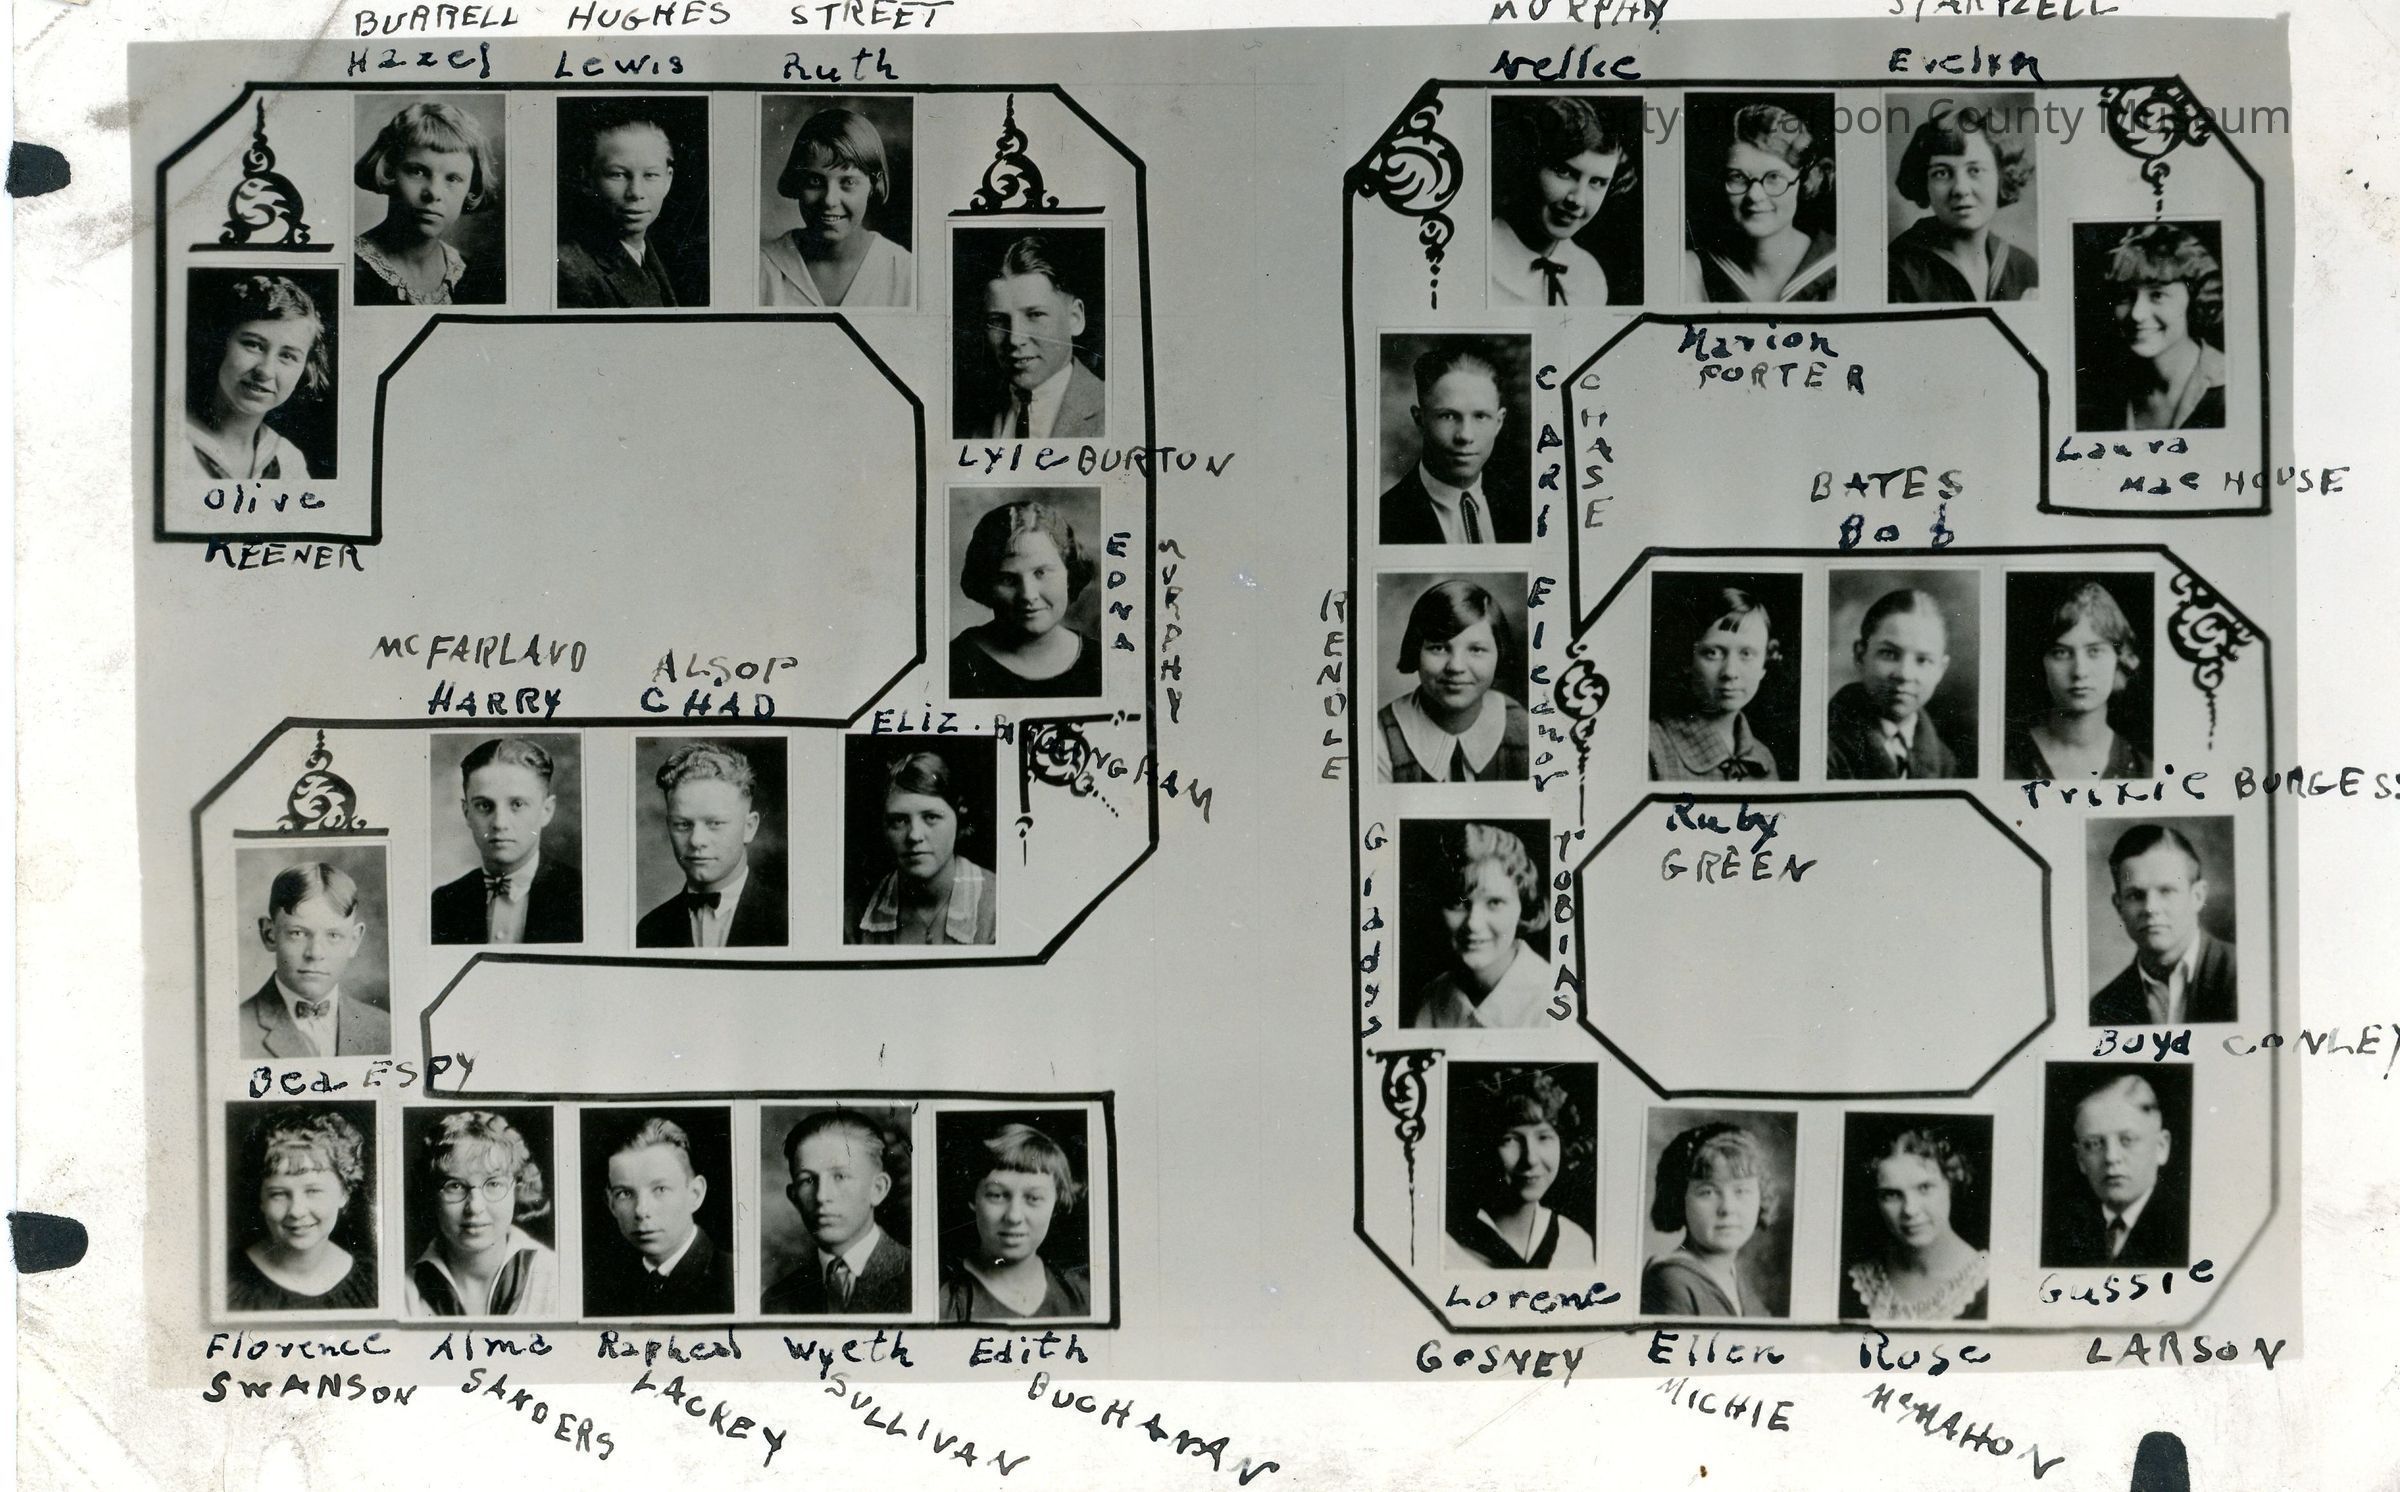 BURRELL HUGHES STREET
Hazel Lewis Ruth
Olive
KEENER
Lyle BURTON
EDNA
MURPHY
MCFARLAND ALSOP
HARRY CHAD
ELIZ.
Bea ESPY
Florence Alma Rapheal Wyeth Edith
SWANSON SANDERS LACKEY SULLIVAN BUCHANAN
MURPHY STARTZELL
Nellie Evelyn
Carbon County Museum
Marion
PORTER
CARl
CHASE
Laura
Mae HOUSE
BATES
Bob
RENDLE
Eleanor
Trixie BURGESS
Ruby
GREEN
Gladys
TOBIAS
Boyd CONLEY
Lorene Gussie
GOSNEY Ellen Rose LARSON
MICHIE McMAHON